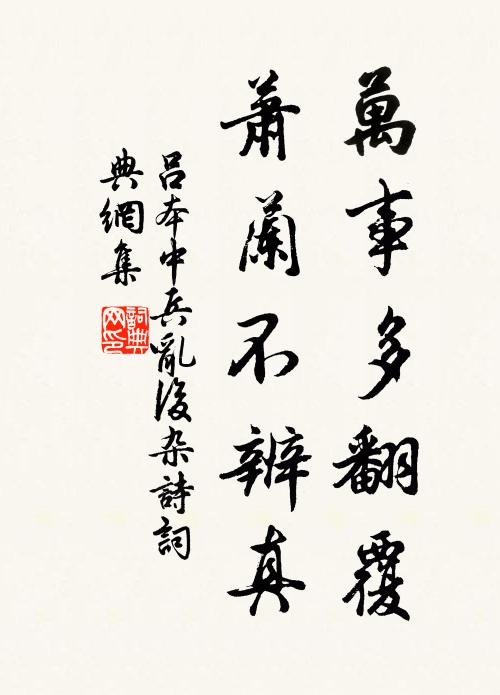 萬事多翻覆
蕭蘭不辨真
呂本中兵亂後杂詩詞
典網集
詞典
网印